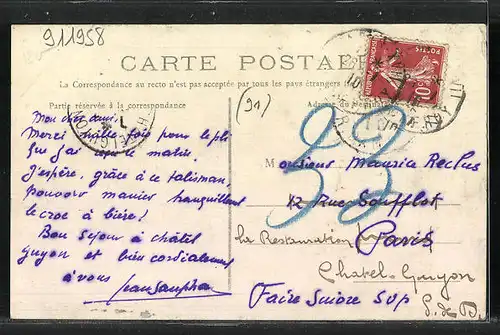 911958
CARTE POSTALE
La Correspondance au recto n'est pas acceptée par tous les pays étrangers
Partie réservée à la correspondance
Adresse du
(91)
POSTES
10
33
Mon cher ami,
Merci mille fois pour le pli
que j'ai reçu ce matin.
J'espère, grâce à ce talisman,
pouvoir manier tranquillement
le croc à bière!
Bon séjour à châtel
guyon et bien cordialement
à vous
Monsieur Maurice Reclus
12 Rue Soufflot
Paris
La Restauration
Chatel-Guyon
Faire Suivre SVP
P. de D.